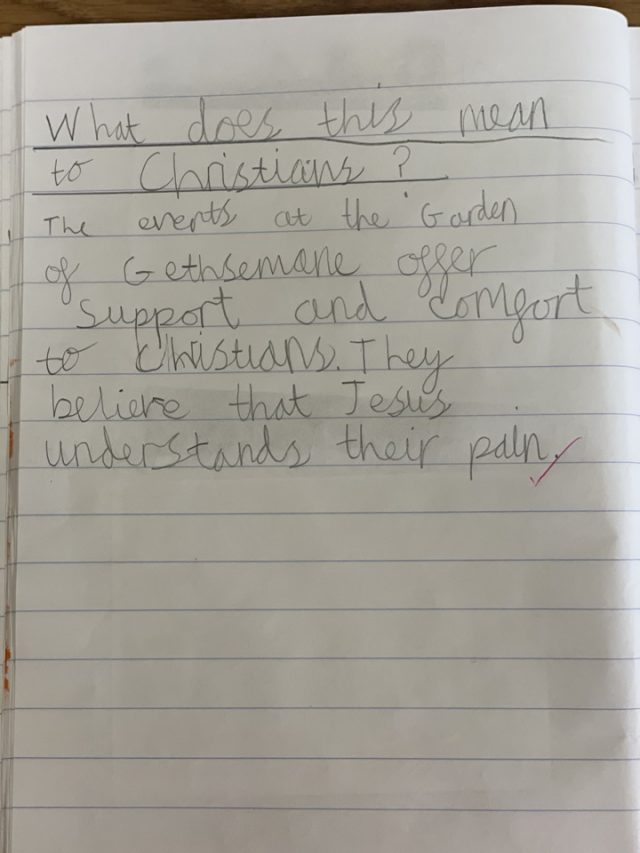 What does this mean
to Christians?
The events at the Garden
of Gethsemane offer
support and comfort
to Christians. They
believe that Jesus
understands their pain.